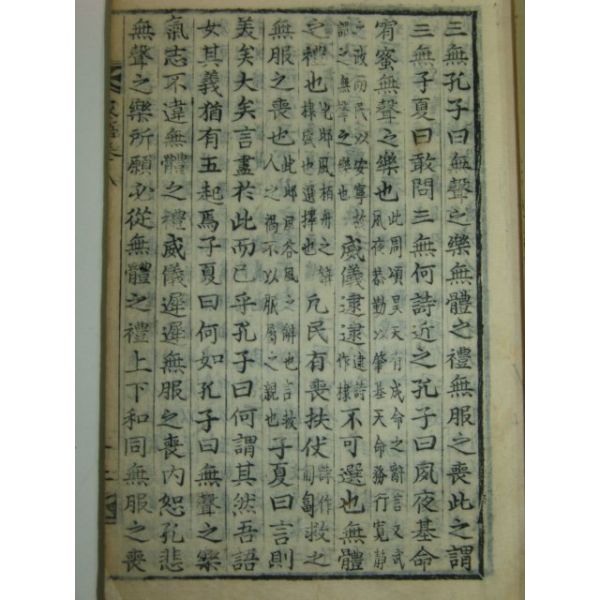 三無孔子曰無聲之樂無體之禮無服之喪此之謂
三無子夏曰敢問三無何詩近之孔子曰夙夜基命
宥蜜無聲之樂也此周頌昊天有成命之辭言文武夙夜恭勤以肇基天命務行寬靜
之政而民以安寧故謂之無聲之樂也威儀逮逮逮詩作棣不可選也無體
之禮也此邶風栢舟之辭棣盛也選擇也凡民有喪扶伏詩作匍匐救之
無服之喪也此邶風谷風之辭也言救人之禍不以服屬之親也子夏曰言則
美矣大矣言盡於此而已乎孔子曰何謂其然吾語
女其義猶有五起焉子夏曰何如孔子曰無聲之樂
氣志不違無體之禮威儀遲遲無服之喪內恕孔悲
無聲之樂所願必從無體之禮上下和同無服之喪